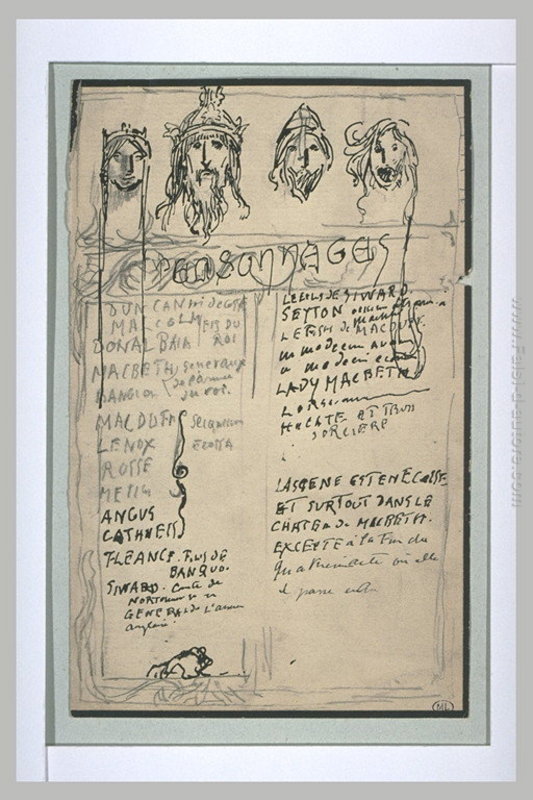 PERSONNAGES
DUNCAN roi de
MALCOLM fils du
DONALBAIN ROI
MACBETH generaux
BANQUO de l'armée
du roi.
MACDUFF seigneurs
LENOX ECOSSE
ROSSE
ANGUS
CATHNESS
FLEANCE. FILS DE
BANQUO.
SIWARD. Comte de
GENERAL de L'armée
anglaise.
LE FILS DE SIWARD.
SEYTON officier
LE FILS de MACDUFF.
un medecin
un medecin
LADY MACBETH
HECATE ET TROIS
SORCIERE
LA SCENE EST EN ECOSSE
ET SURTOUT DANS LE
CHATEAU de MACBETH.
EXCEPTÉ à la Fin du
où elle
se passe en
ML
www.Falsi-d-autore.com